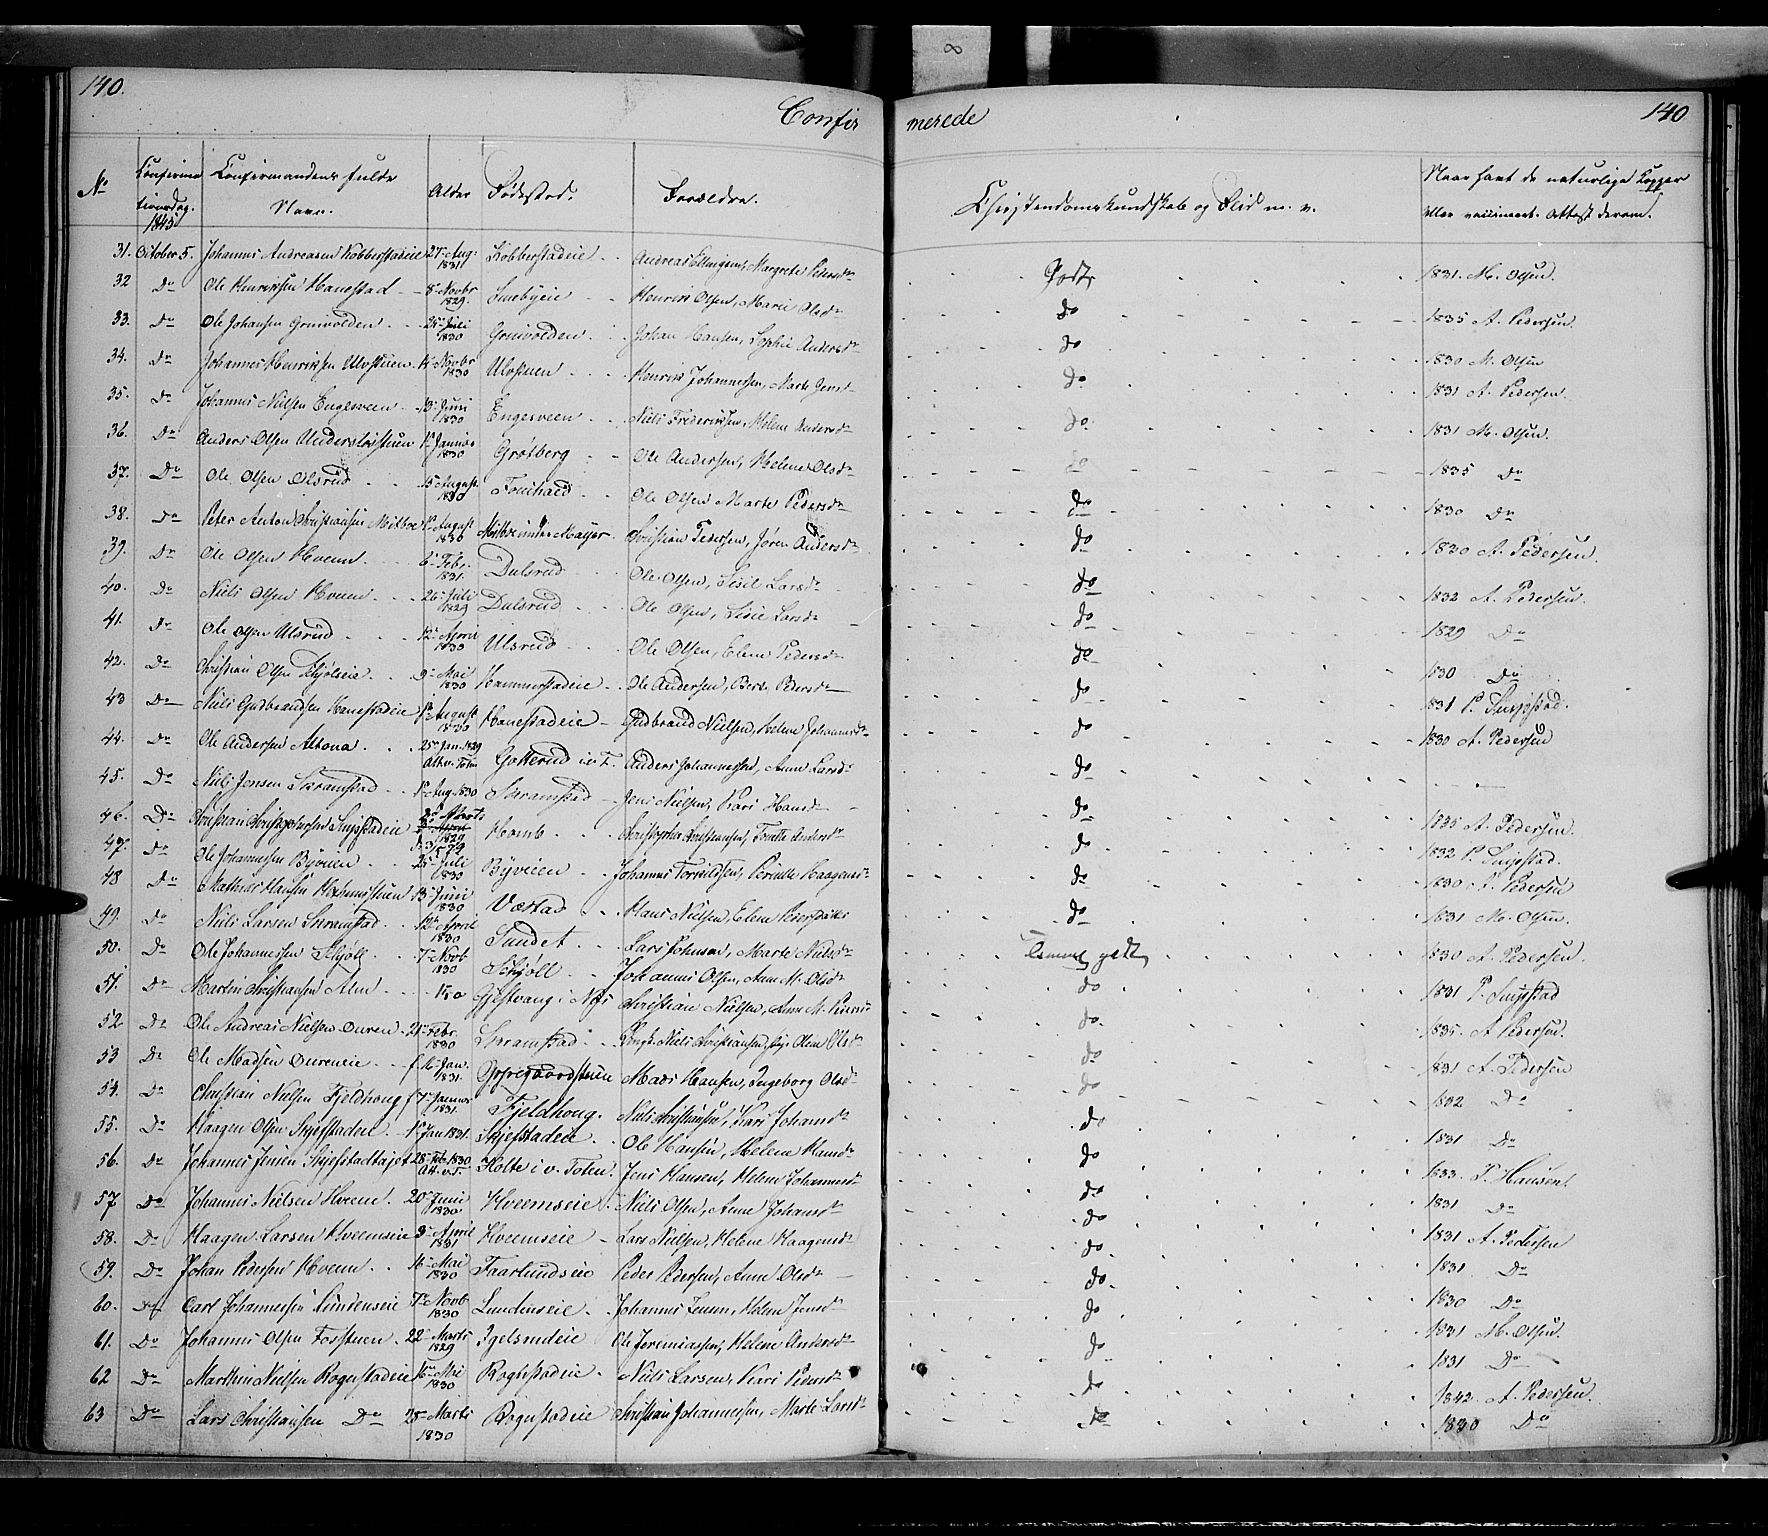 140.
Confir merede
140
No
Confirma
tionsdag.
1845
Confirmandens fulde
Navn.
Alder
Fødested.
Forældre.
Christendomskundskab og Flid m. v.
Naar havt de naturlige Kopper
eller vaccineret. Attest derom.
31. October 5. Johannes Andreasen Kobberstadeie 27 Aug. 1831 Kobberstadeie Andreas Ellingsen, Margrete Pedersdr Godt 1831. M. Olsen.
32 Do Ole Henriksen Hanestad 8 Novbr 1829. Smebyeie Henrik Olsen, Marie Olsdr do 1835 A. Pedersen.
33. Do Ole Johansen Grimolden 25 Juli 1830 Grimolden Johan Hansen, Sophie Andersdr do 1830 M. Olsen
34. Do Johannes Henriksen Ulvstuen 14 Novbr 1830 Ulvstuen Henrik Johannessen, Marte Jensdr do 1831 A. Pedersen
35. Do Johannes Nielsen Engesveen 13 Juni 1830 Engesveen Niels Frederiksen, Helene Andersdr do 1831 M. Olsen.
36. Do Anders Olsen 1 Januar 1830 Grøtberg Ole Andersen, Helene Olsdr do 1835 Do
37. Do Ole Olsen Olsrud 15 August 1830 Ole Olsen Marte Pedersdr do 1830 Do
38. Do Peter Anton Christiansen August 1830 Christian Pedersen, Jøren Andersdr do 1830 A. Pedersen.
39. Do Ole Olsen Hveem 6 Febr. 1831. Dulsrud Ole Olsen, Sisil Larsdr do 1832 A. Pedersen.
40. Do Niels Olsen Hveem 26 Juli 1829 Dulsrud Ole Olsen, Sisil Larsdr do 1829 Do
41. Do Ole Olsen Ulsrud 12 April 1830 Ulsrud Ole Olsen, Elene Pedersdr do 1830 Do
42. Do Christian Olsen Schjølseie 9 Mai 1830 Hammerstadeie Ole Andersen, Pedersdr do 1831 P.
43 Do Niels Gudbrandsen Hanestadeie August 1830 Hanestadeie Gudbrand Nielsen, Helene Johannesdr do 1830 A. Pedersen
44. Do Ole Andersen Altona 25 Jan. 1829 Att. v. Toten Gotterud i v. T. Anders Johannessen, Anne Larsdr do
45. Do Niels Jensen Skramstad 1 Aug. 1830 Skramstad Jens Nielsen, Kari Hansdr do 1835 A. Pedersen.
46. Do Christian Christophersen Marts 1829 Christopher Christiansen, Andersdr do 1832 P.
47. Do Ole Johannessen Byveien 25 Juli 1830 Byveien Johannes Torvildsen, Pernille Haagensdr do 1830 A. Pedersen
48 Do Mathias Hansen 13 Juni 1830 Væstad Hans Nielsen, Elene do 1831 M. Olsen.
49. Do Niels Larsen Skramstad 12 April 1830 Sundet Lars Johnsen, Marte Nielsdr Temmel. godt 1830 A. Pedersen.
50. Do Ole Johannessen Schjøll 7 Novb 1830 Schjøll Johannes Olsen, Anne M. Olsdr do 1831 P.
51. Do Martin Christiansen Alm 1830 Gjestvang i Næs Christian Nielsen, Anne M. do 1835. A. Pedersen.
52 Do Ole Andreas Nielsen Ouren 21 Febr. 1830 Skramstad Ungk. Niels Christiansen, Pige Olene Olsdr do 1831 A. Pedersen
53 Do Ole Madsen Oureneie f. 16 Jan. 1831. Opsegaardstuen Mads Hansen, Ingeborg Olsdr do 1832 Do
54. Do Christian Nielsen Fjeldhoug f 7 Januar 1831. Fjeldhoug. Niels Christiansen, Kari Johansdr do 1831 Do
55. Do Haagen Olsen Skjefstadeie 1 Jan 1831. Skjefstadeie Ole Hansen, Helene Hansdr do 1833. P. Hansen
56. Do Johannes Jensen 28 Feb. 1830 Att. v. T. Holte i v. Toten. Jens Hansen, Helene Johannesdr do 1831 Do
57 Do Johannes Nielsen Hveem 20 Juni 1830 Hveemseie Niels Olsen, Anne Johansdr do 1831 A. Pedersen
58. Do Haagen Larsen Hveemseie 3 April 1831 Hveemseie Lars Nielsen, Helene Haagensdr do 1831 Do
59. Do Johan Pedersen Hveem 16 Mai 1830 Taarlundseie Peder Pedersen, Anne Olsdr do 1830 Do
60. Do Carl Johannessen Lundenseie 7 Novb 1830 Lundenseie Johannes Jensen, Helene Jensdr do 1831 M. Olsen.
61. Do Johannes Olsen Fosstuen 22 Marts 1829 Igelsrudeie Ole Jeremiassen, Helene Andersdr do 1831 Do
62 Do Marthin Nielsen Rognstadeie 16 Mai 1830 Rognstadeie Niels Larsen, Kari Pedersdr do 1842. A. Pedersen.
63 Do Lars Christiansen Do 25 Marts 1830 Rognstadeie Christian Johannessen, Marte Larsdr do 1830 Do